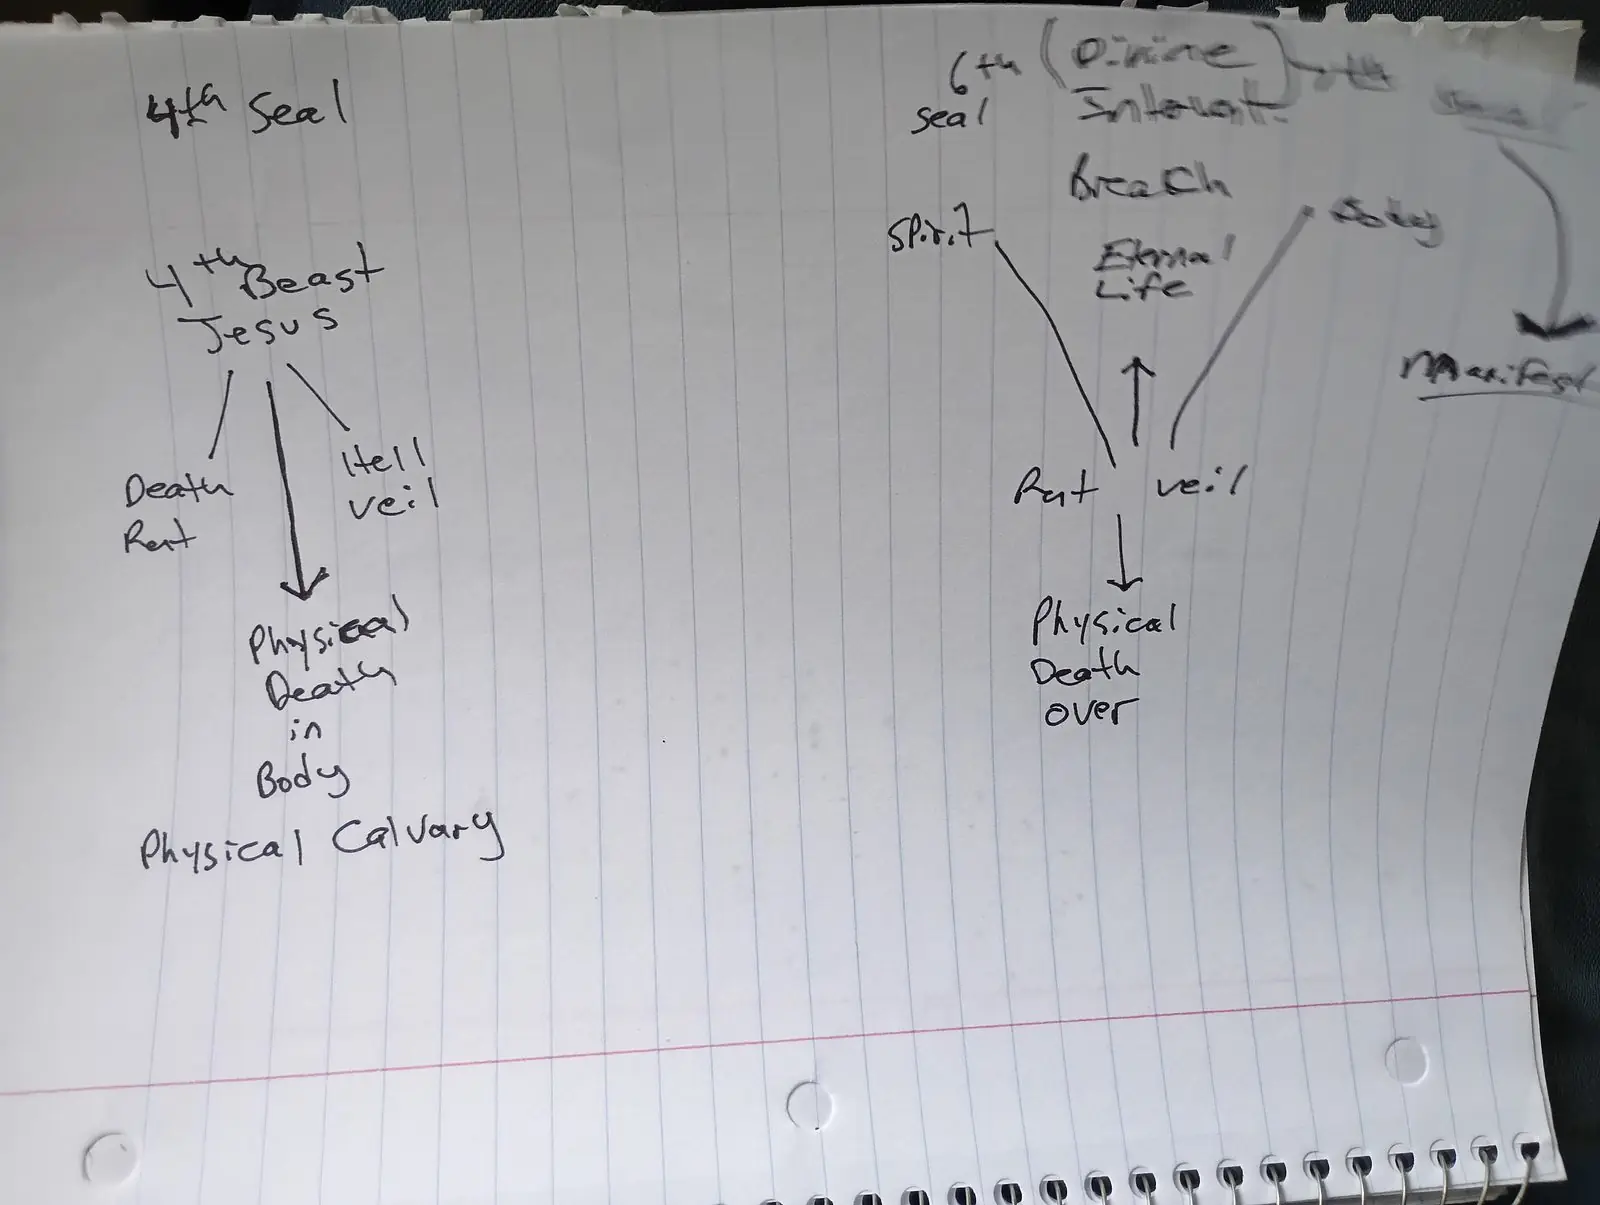 4th Seal
4th Beast
Jesus
Death
Rent
Hell
veil
Physical
Death
in
Body
Physical Calvary
6th
Seal
(Divine
Breach
Eternal
Life
Spirit
Body
Manifest
Rent veil
Physical
Death
over